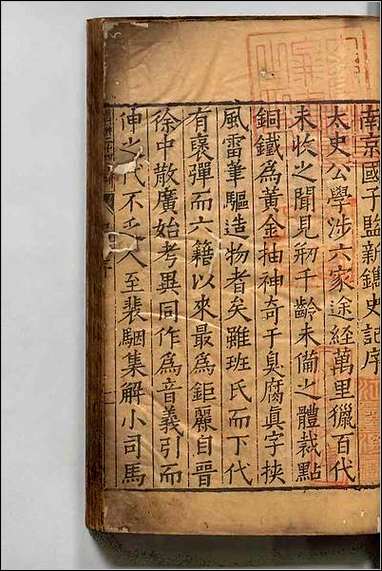 南京國子監新鐫史記序
太史公學涉六家途經萬里獵百代
未收之聞見剏千齡未備之體裁點
銅鐵爲黃金抽神奇于臭腐眞字挾
風雷筆驅造物者矣雖班氏而下代
有褒彈而六籍以來最爲鉅麗自晉
徐中散廣始考異同作爲音義引而
伸之代不乏人至裴駰集解小司馬